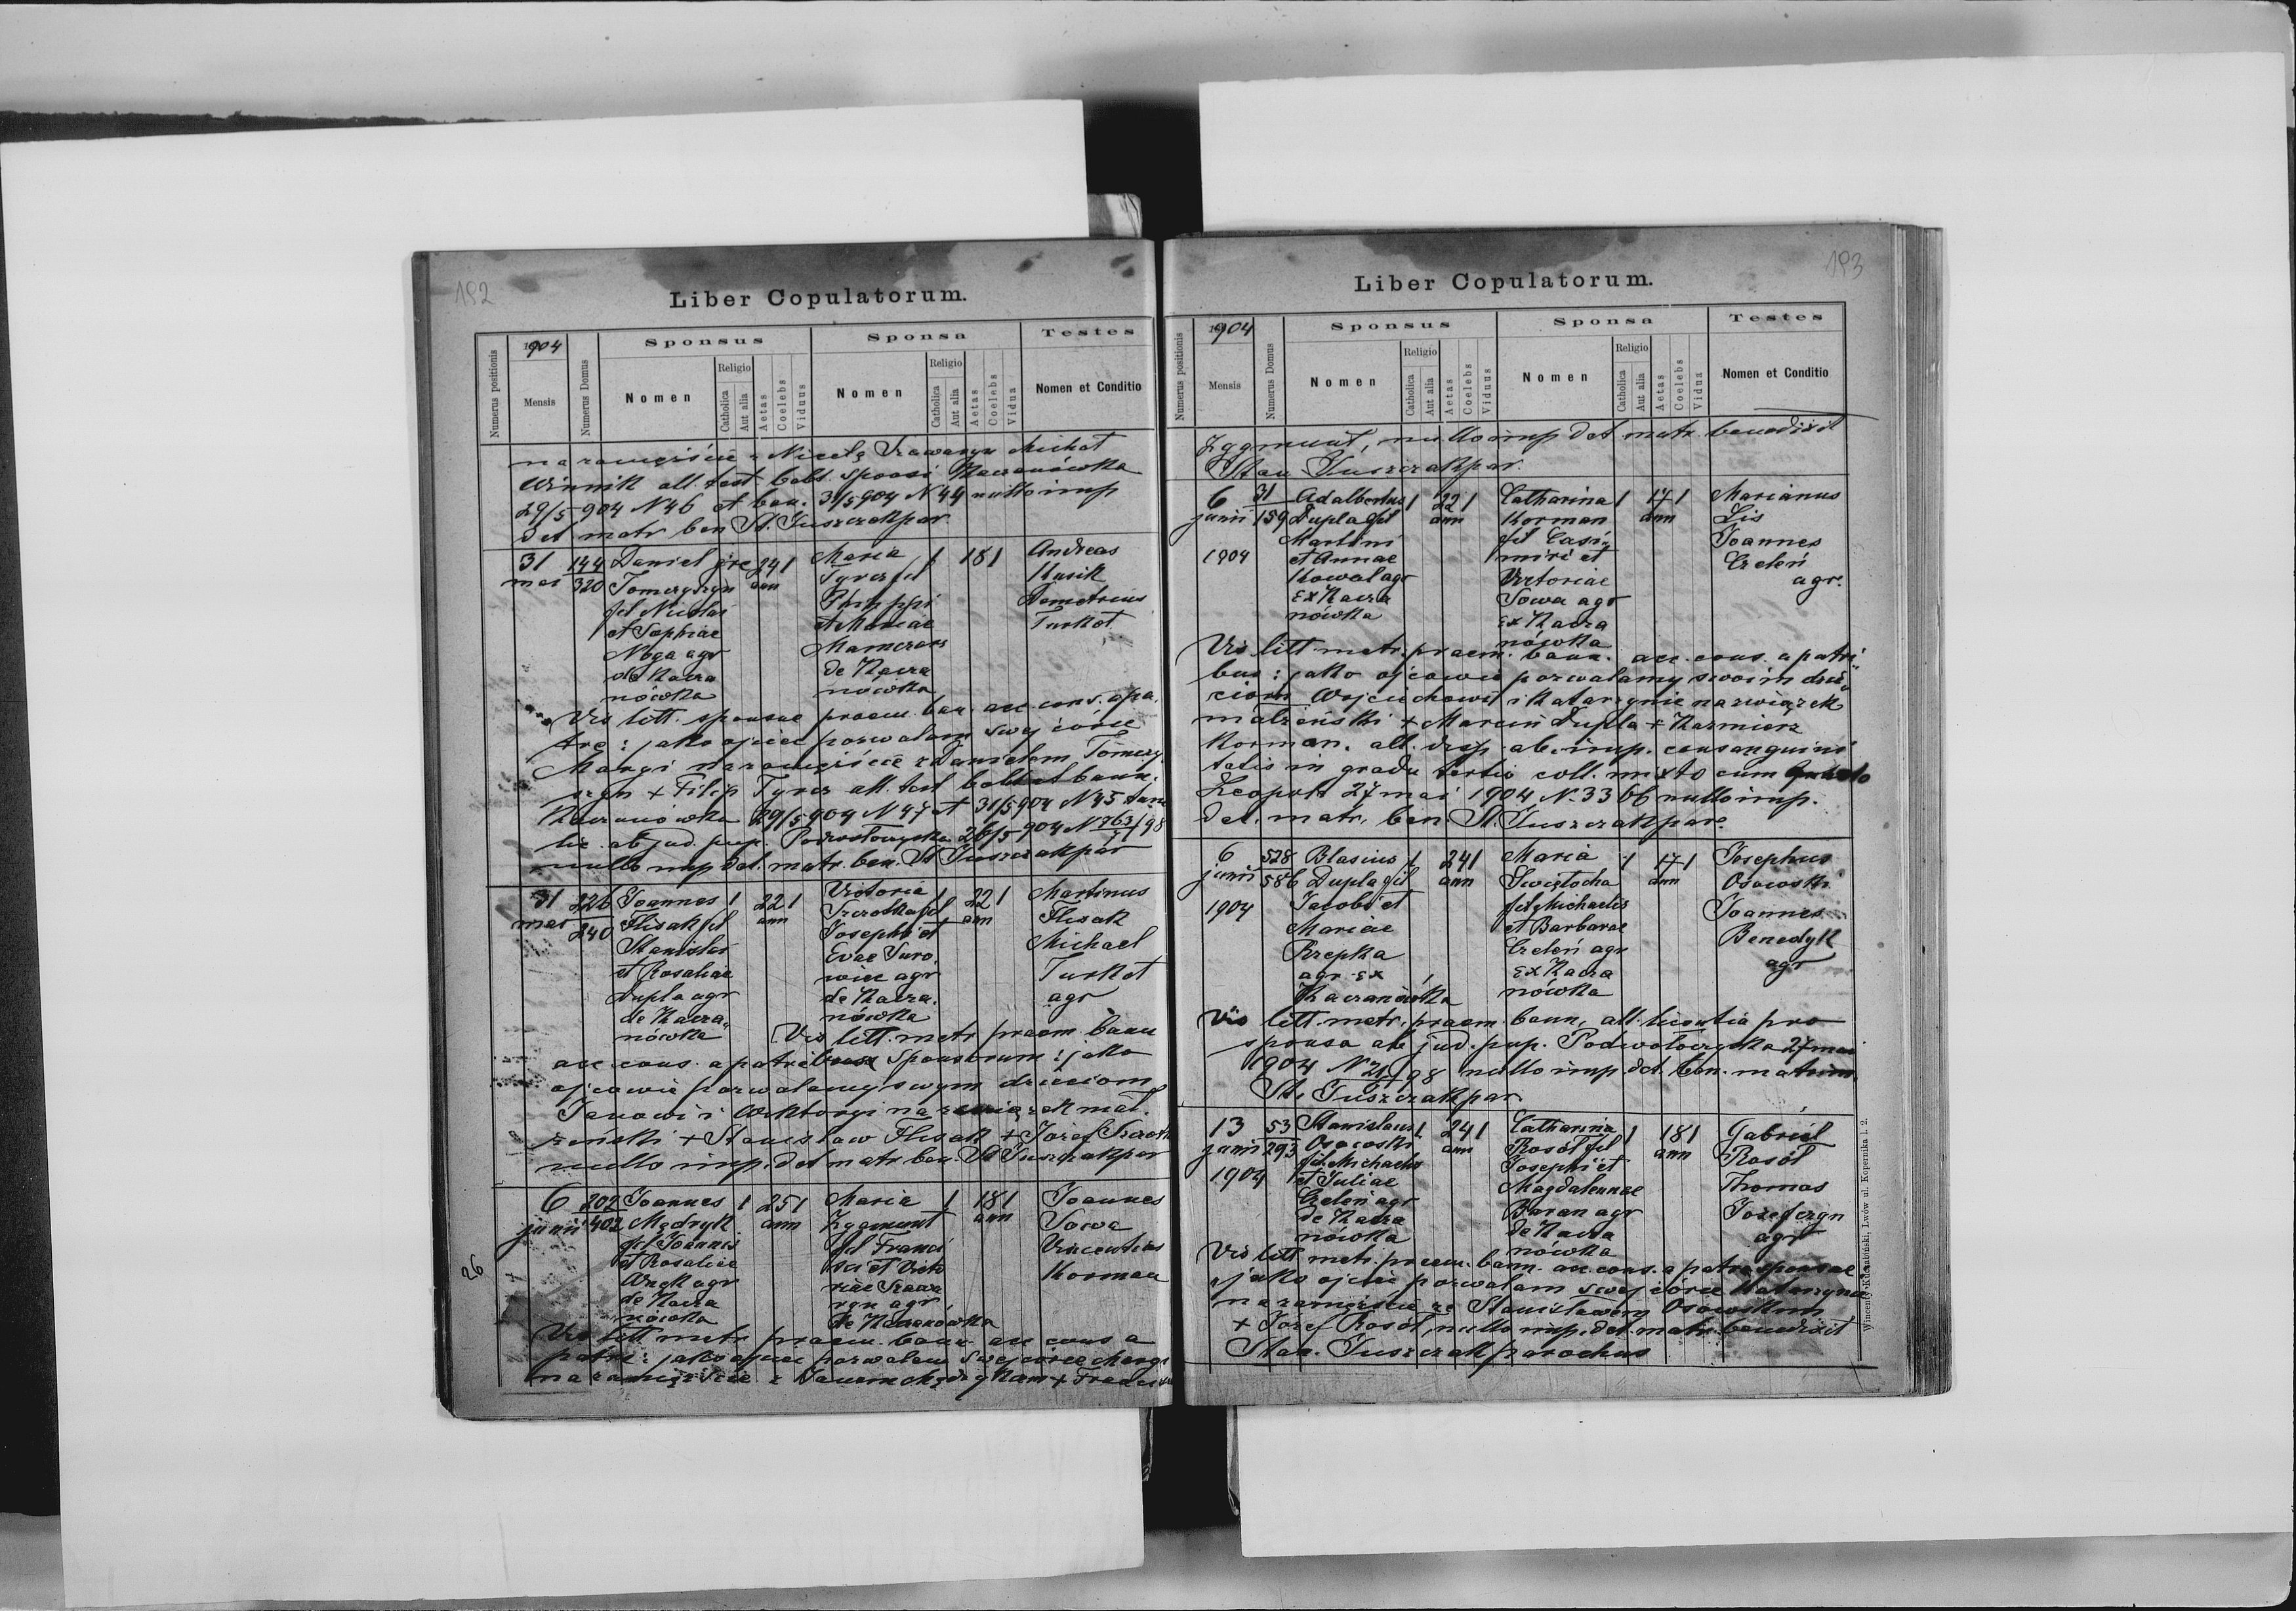 192
Liber Copulatorum.
Numerus positionis
1904
Mensis
Numerus Domus
Sponsus
Nomen
Religio
Catholica
Aut alia
Aetas
Coelebs
Viduus
Sponsa
Nomen
Religio
Catholica
Aut alia
Aetas
Coelebs
Vidua
Testes
Nomen et Conditio
na zamęście z Michał
Winnik all. test. sponsi Kaczanówka
29/5 904 N 46 et ban. 31/5 904 N 44 nullo imp
det matr ben St. Juszczak par
31 144 Daniel gre 24 1 Maria 1 18 1 Andreas
mai 320 Tomczyszyn ann Tyrcz fil Kusik
fil Nicolai Philippi Demetrius
et Sophiae et Mariae Turkot
Noga agr
de Kacza de Kacza
nówka nówka
Vis litt. sponsae praem. ban. acc. cons. a pa
tre: jako ojciec pozwalam swej córce
Maryi na zamęście z Danielem Tomczy
szyn + Filip Tyrcz all. test
Kaczanówka 29/5 904 N 47 et 31/5 904 N 45
lic. ab jud. pup. 26/5 904 N 763/98
nullo imp det. matr. ben. St Juszczak par
31 226 Joannes 1 22 1 Victoria 1 22 1 Martinus
mai 240 Flisak fil ann Szerotka fil ann Flisak
Stanislai Josephi et Michael
et Rosaliae Evae Juro Turkot
Dupla agr wicz agr agr
de Kacza de Kacza
nówka nówka
Vis litt. metr praem. bann
acc cons. a patribus sponsorum: jako
ojcowie pozwalamy swym dzieciom
Janowi i Wiktoryi na związek mał
żeński + Stanisław Flisak + Józef
nullo imp. det matr ben. St Juszczak par
6 202 Joannes 1 25 1 Maria 1 18 1 Joannes
junii 402 Mędryk ann Zygmunt ann Sowa
fil Joannis fil Franci Vincentius
et Rosaliae sci et Victo Korman
agr riae
de Kacza agr
nówka de Kaczanówka
Vis litt metr praem. bann. acc cons a
patre: jako ojciec pozwalam swej córce Maryi
na zamęście z Janem Mędrykiem +
26
193
Liber Copulatorum.
Numerus positionis
1904
Mensis
Numerus Domus
Sponsus
Nomen
Religio
Catholica
Aut alia
Aetas
Coelebs
Viduus
Sponsa
Nomen
Religio
Catholica
Aut alia
Aetas
Coelebs
Vidua
Testes
Nomen et Conditio
Zygmunt, nullo imp det matr. benedixit
Stan Juszczak par.
6 31 Adalbertus 1 22 1 Catharina 1 17 1 Marianus
junii 159 Dupla fil ann Korman ann Lis
Martini fil Casi Joannes
1904 et Annae miri et Czeleń
Kowal agr Victoriae agr.
ex Kacza Sowa agr
nówka ex Kacza
nówka
Vis litt metr. praem. bann. acc. cons. a patri
bus: jako ojcowie pozwalamy swoim dzie
ciom Wojciechowi i Katarzynie na związek
małżeński + Marcin Dupla + Kazmierz
Korman. all. disp. ab. imp. consanguini
tatis in gradu tertio coll. mixto cum quarto
Leopoli 27 mai 1904 N. 3366 nullo imp.
det. matr. ben. St. Juszczak par.
6 528 Blasius 1 24 1 Maria 1 17 1 Josephus
junii 586 Dupla fil ann Swistocha ann Osowski
1904 Jacobi et fil Michaelis Joannes
Mariae et Barbarae Benedyk
Rzepka Czeleń agr agr
agr ex ex Kacza
Kaczanówka nówka
Vis litt. metr. praem. bann, all. licentia pro
sponsa ab jud. pup. 27 mai
1904 nullo imp det. ben. matrim.
St. Juszczak par.
13 53 Stanislaus 1 24 1 Catharina 1 18 1 Gabriel
junii 293 Osowski ann Rosół fil ann Rosół
1904 fil. Michaelis Josephi et Thomas
et Juliae Magdalenae Józefczyn
Czeleń agr Baran agr agr
de Kacza de Kacza
nówka nówka
Vis litt metr. praem. bann. acc. cons. a patre sponsae
jako ojciec pozwalam swej córce Katarzynie
na zamęście ze Stanisławem Osowskim
+ Józef Rosół, nullo imp. det. matr. benedixit
Stan. Juszczak parochus
Wincenty Kuczabiński, Lwów ul. Kopernika l. 2.